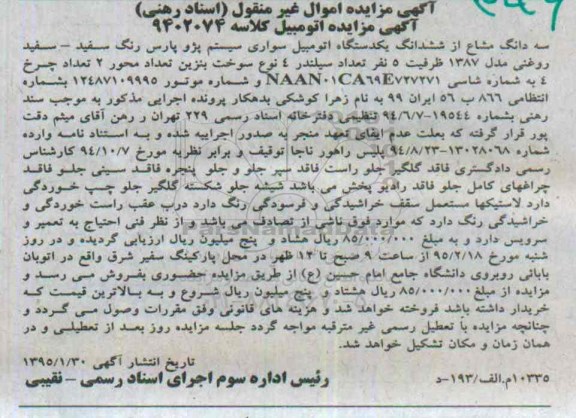 آگهی مزایده اموال غیر منقول (اسناد رهنی)
آگهی مزایده اتومبیل کلاسه ۹۴۰۲۰۷۴
سه دانگ مشاع از ششدانگ یکدستگاه اتومبیل سواری سیستم پژو پارس رنگ سفید – سفید
روغنی مدل ۱۳۸۷ ظرفیت ۵ نفر تعداد سیلندر ۴ نوع سوخت بنزین تعداد محور ۲ تعداد چرخ
۴ به شماره شاسی NAAN۰۱CA۶۹E۷۲۷۲۷۱ و شماره موتور ۱۲۴۸۷۱۰۹۹۹۵ بشماره
انتظامی ۸۶۶ ب ۵۶ ایران ۹۹ به نام زهرا کوشکی بدهکار پرونده اجرایی مذکور به موجب سند
رهنی بشماره ۱۹۵۴۴-۹۴/۶/۷ تنظیمی دفترخانه اسناد رسمی ۲۲۹ تهران و رهن آقای میثم دقت
پور قرار گرفته که بعلت عدم ایفای تعهد منجر به صدور اجراییه شده و به استناد نامه وارده
شماره ۱۳۰۲۸۰۶۸-۹۴/۸/۲۳ پلیس راهور ناجا توقیف و برابر نظریه مورخ ۹۴/۱۰/۷ کارشناس
رسمی دادگستری فاقد گلگیر جلو راست فاقد سپر جلو و جلو پنجره فاقد سینی جلو فاقد
چراغهای کامل جلو فاقد رادیو پخش می باشد شیشه جلو شکسته گلگیر جلو چپ خوردگی
دارد لاستیکها مستعمل سقف خراشیدگی و فرسودگی رنگ دارد درب عقب راست خوردگی و
خراشیدگی رنگ دارد که موارد فوق ناشی از تصادف می باشد و از نظر فنی احتیاج به تعمیر و
سرویس دارد و به مبلغ ۸۵/۰۰۰/۰۰۰ ریال هشتاد و پنج میلیون ریال ارزیابی گردیده و در روز
شنبه مورخ ۹۵/۲/۱۸ از ساعت ۹ صبح تا ۱۲ ظهر در محل پارکینگ سفیر شرق واقع در اتوبان
بابائی روبروی دانشگاه جامع امام حسین (ع) از طریق مزایده حضوری بفروش می رسد و
مزایده از مبلغ ۸۵/۰۰۰/۰۰۰ ریال هشتاد و پنج میلیون ریال شروع و به بالاترین قیمت که
خریدار داشته باشد فروخته خواهد شد و هزینه های قانونی وفق مقررات وصول می گردد و
چنانچه مزایده با تعطیل رسمی غیر مترقبه مواجه گردد جلسه مزایده روز بعد از تعطیلی و در
همان زمان و مکان تشکیل خواهد شد.
تاریخ انتشار آگهی ۱۳۹۵/۱/۳۰
۱۰۳۳۵م.الف/۱۹۳-د رئیس اداره سوم اجرای اسناد رسمی – نقیبی